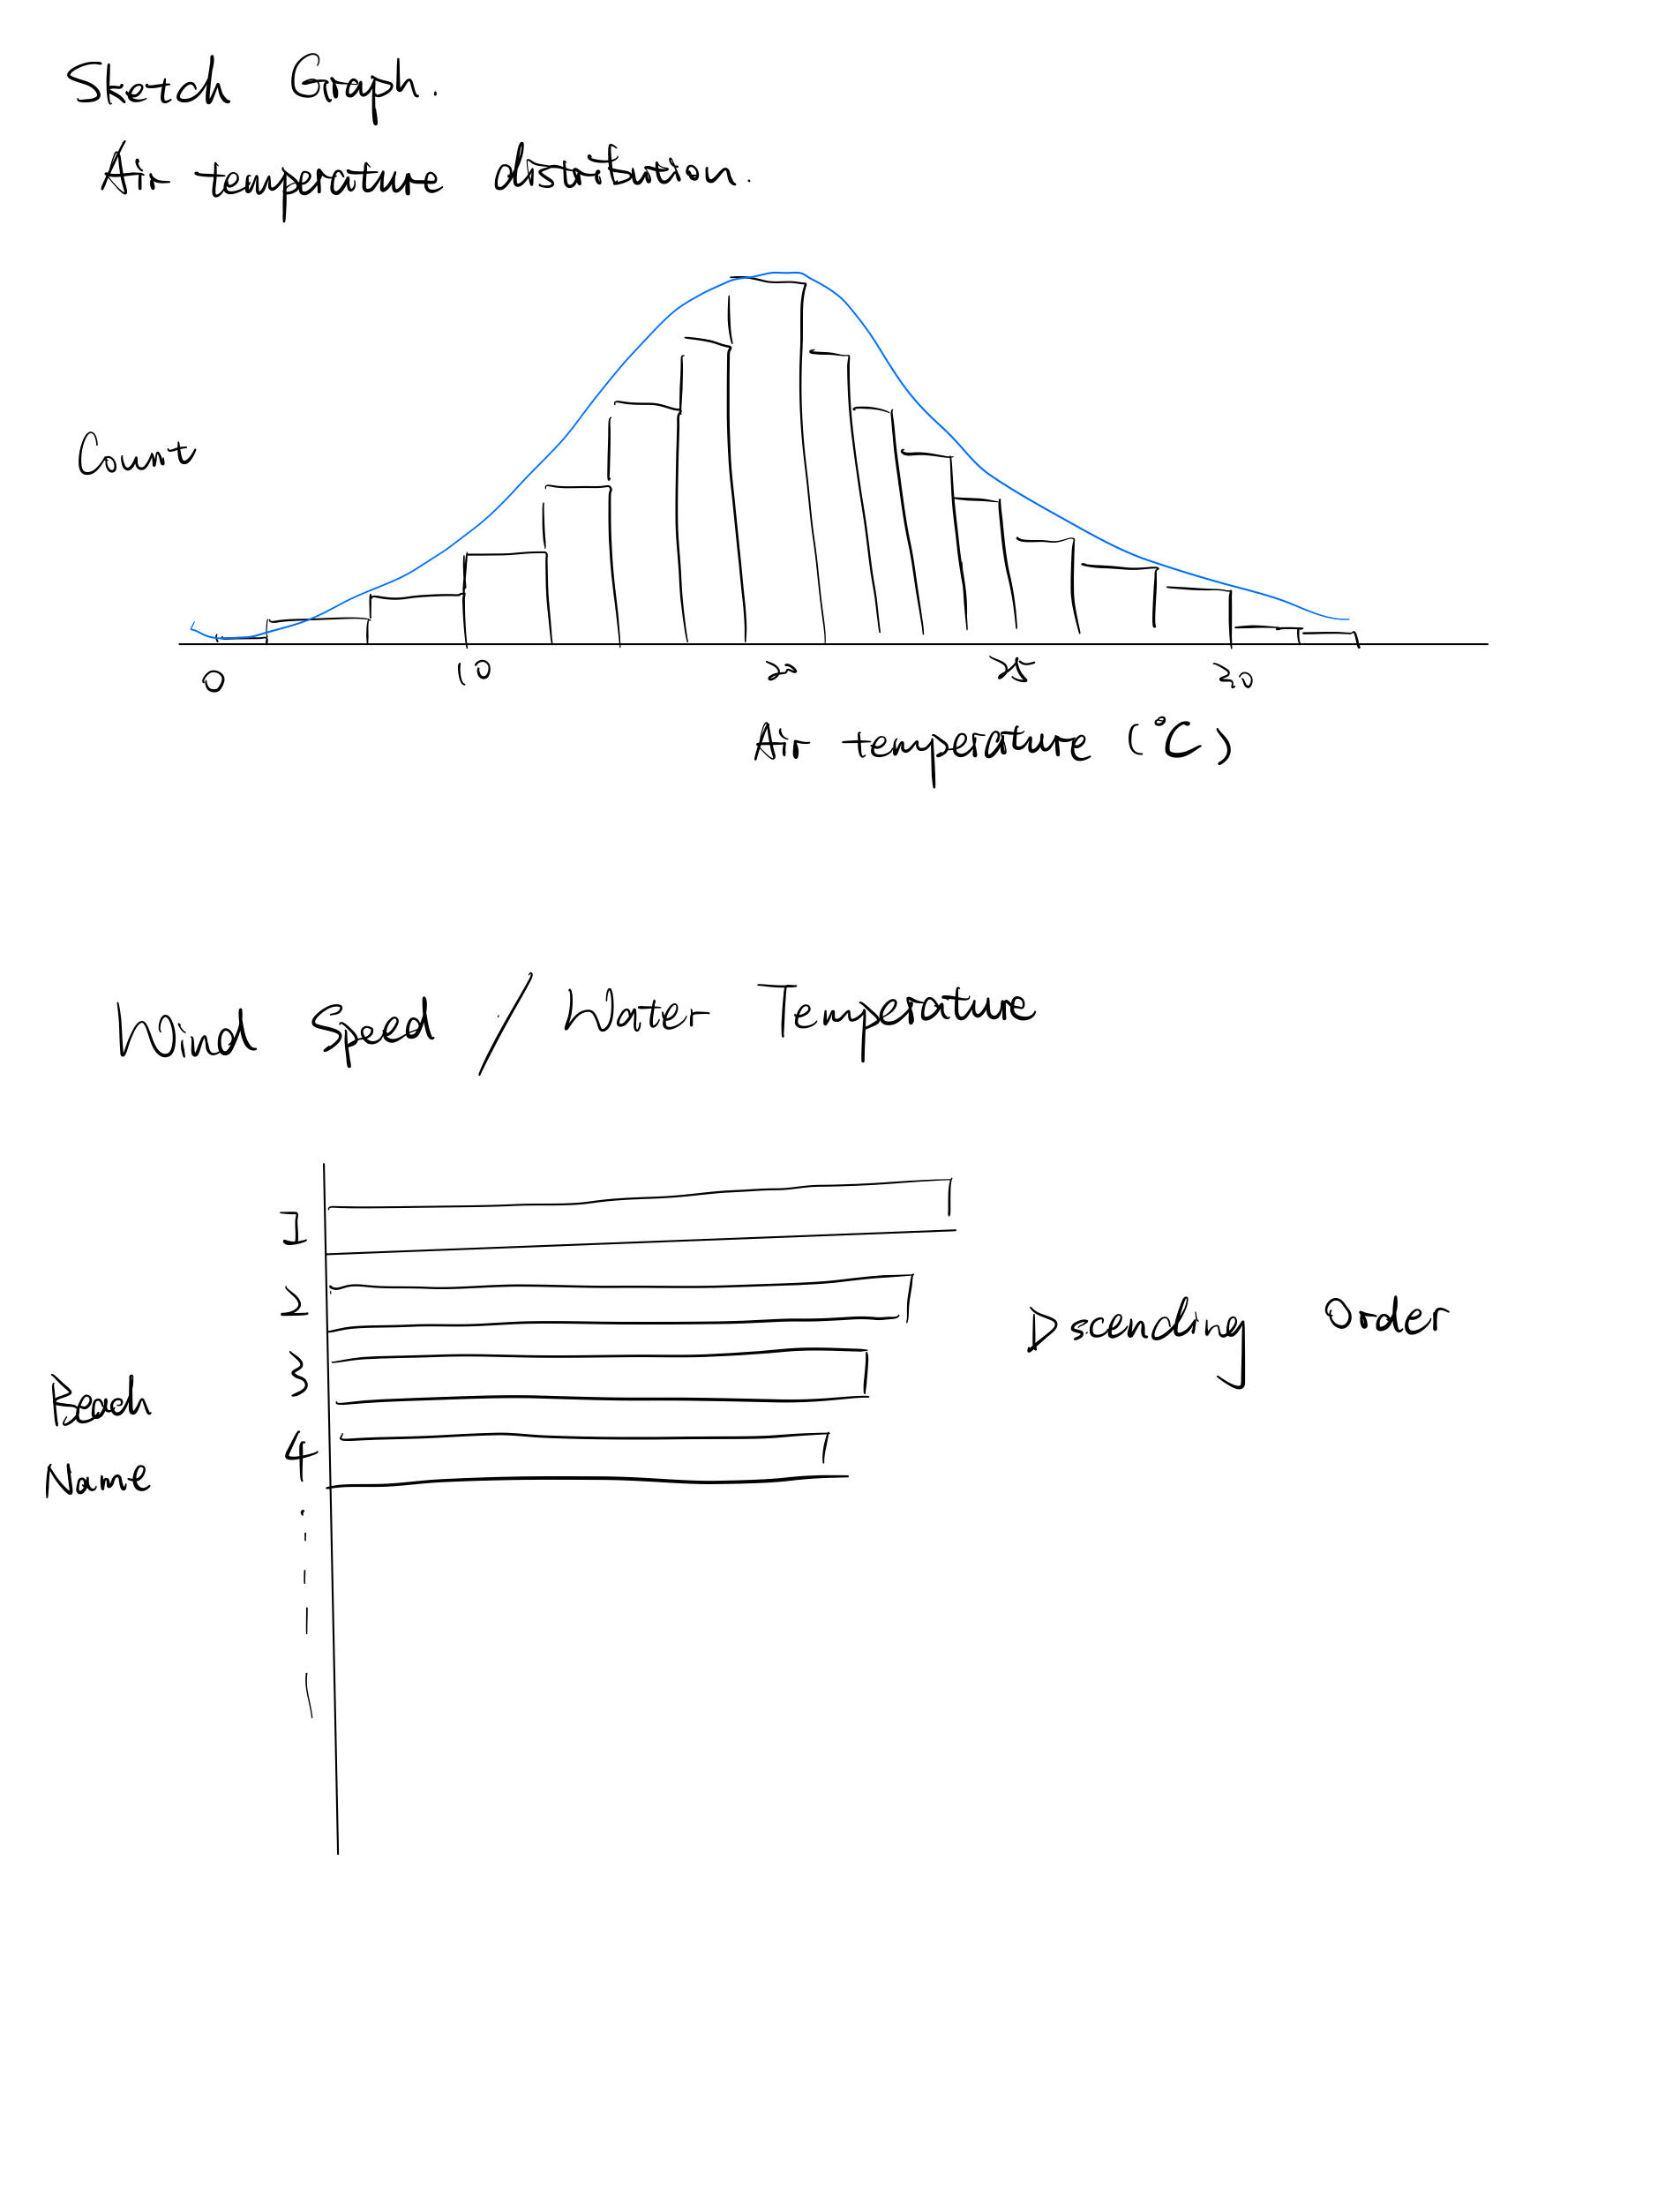 Sketch Graph.
Air temperature distribution.
Count
0 10 20 25 30
Air temperature (°C)
Wind Speed / Water Temperature
1
2
3
4
Beach
Name
Dscending Order